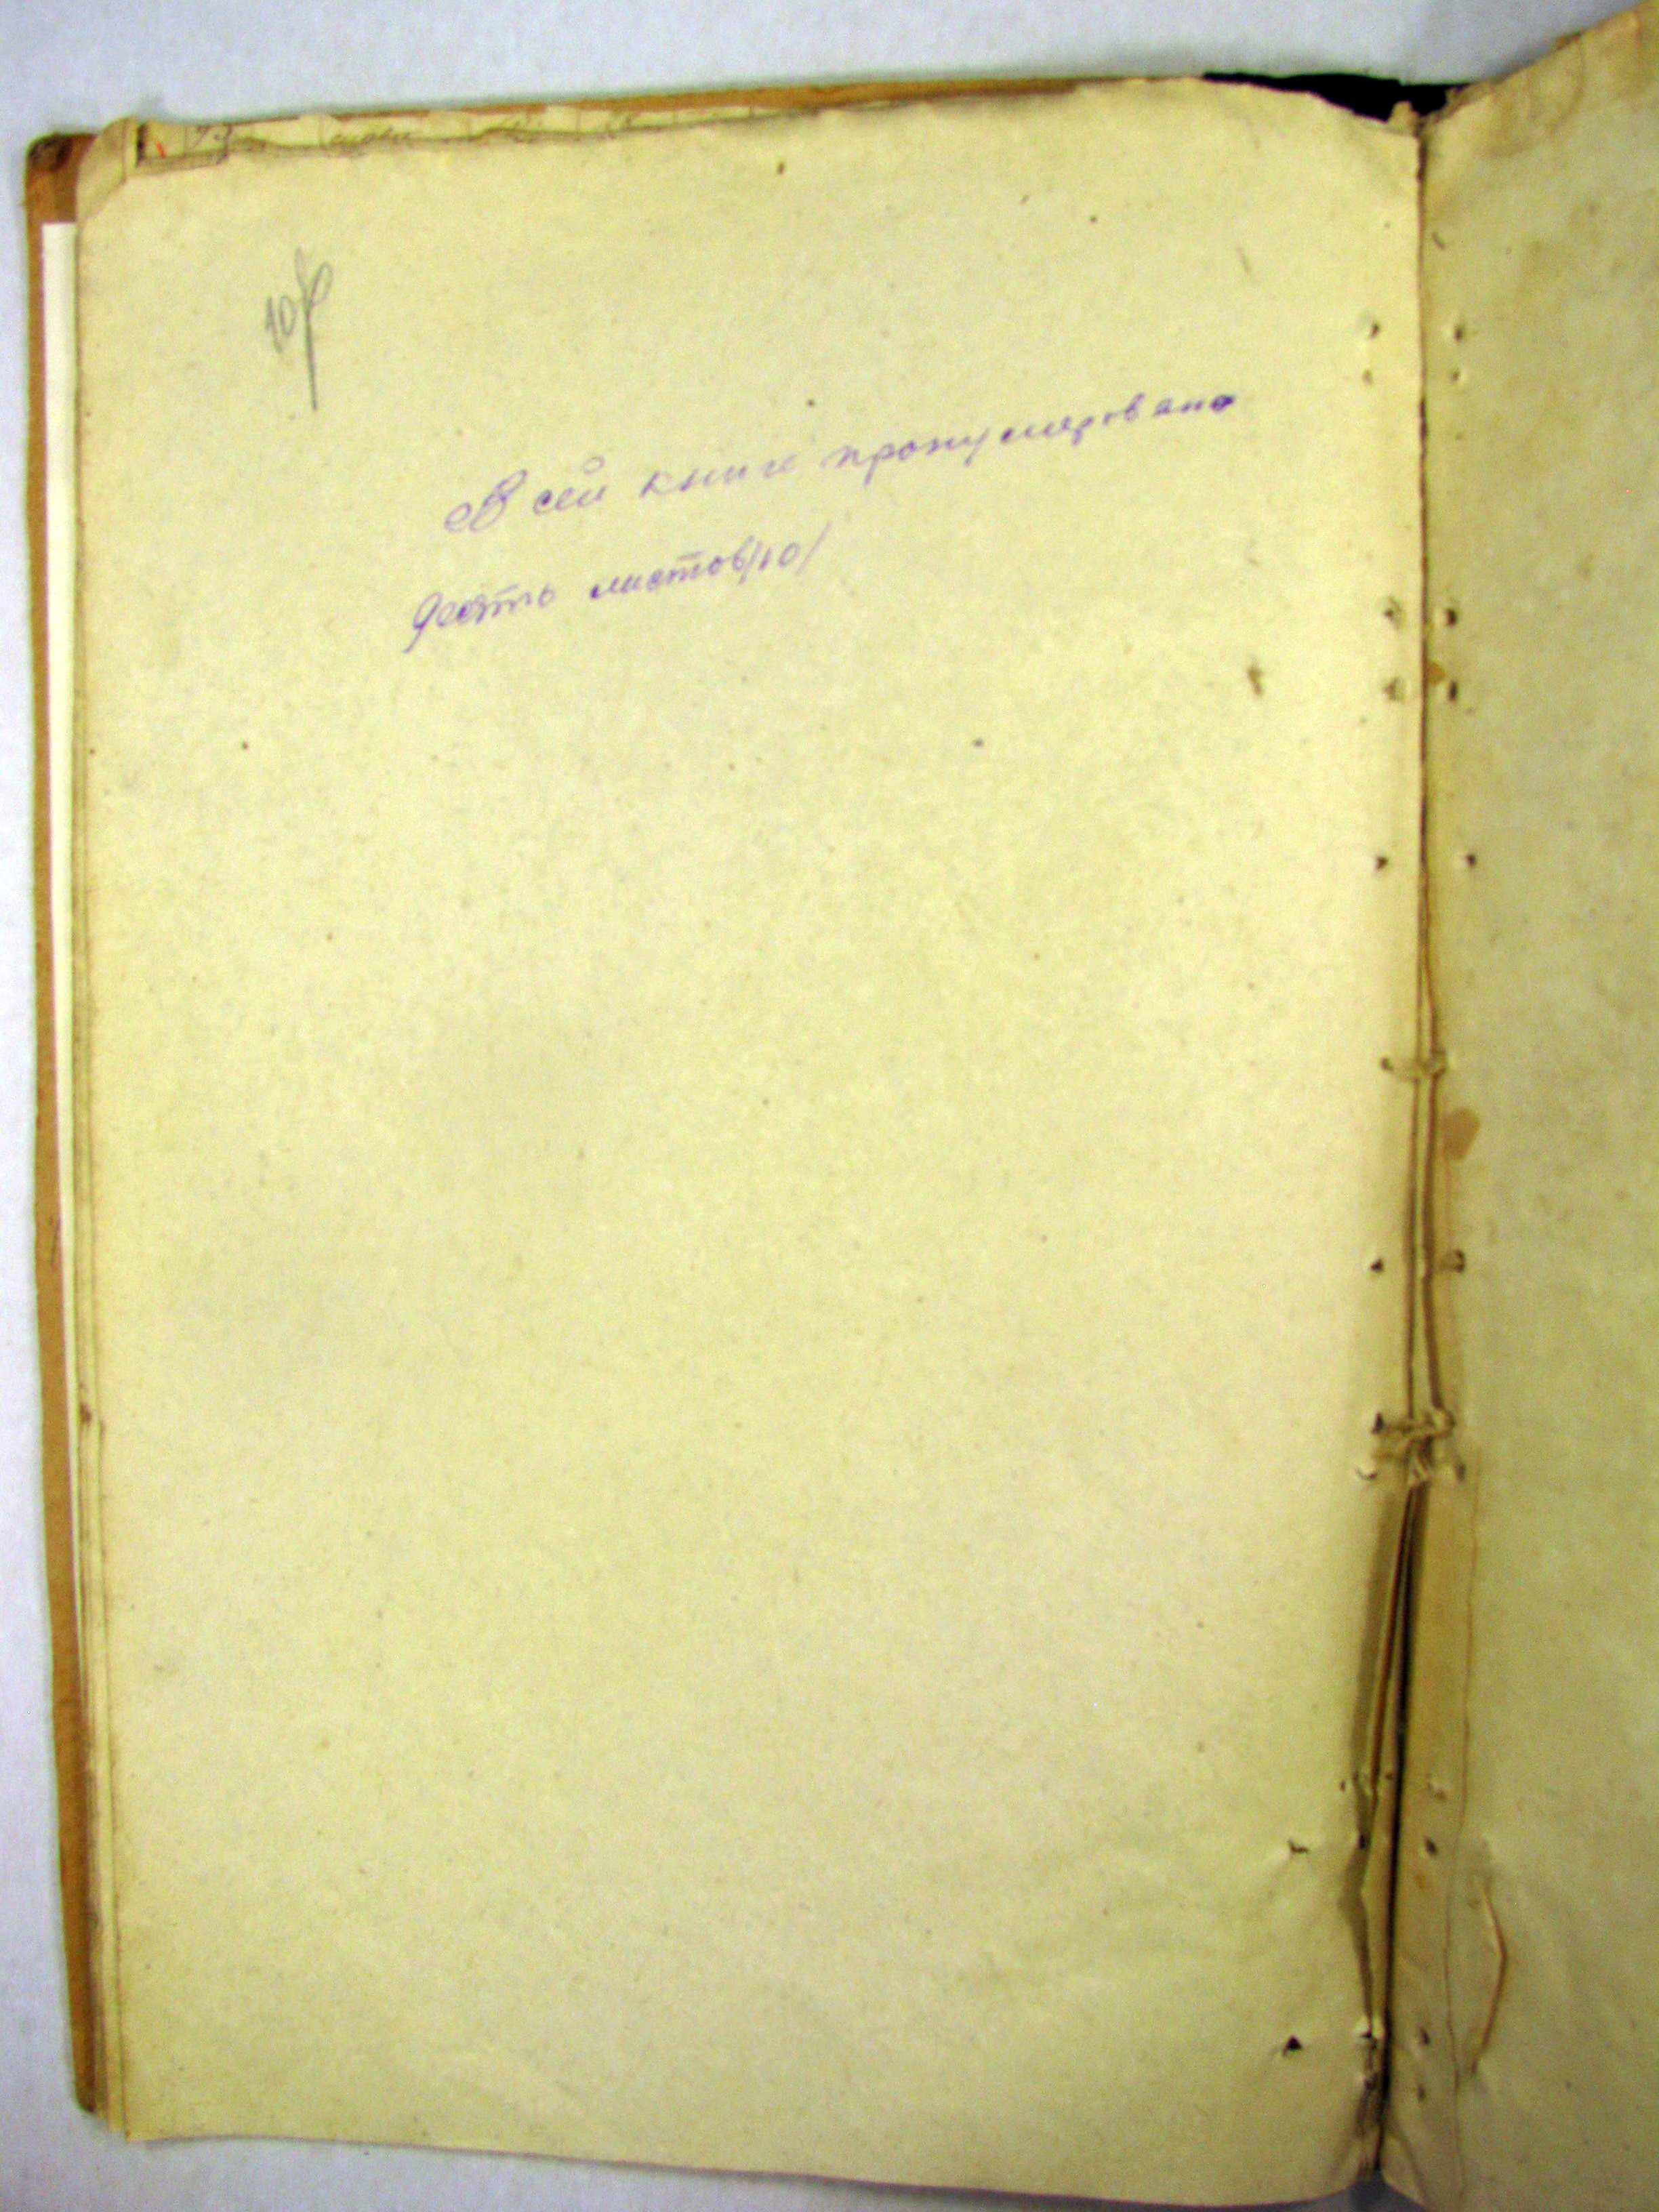 В сей книге пронумеровано
десять листов /10/